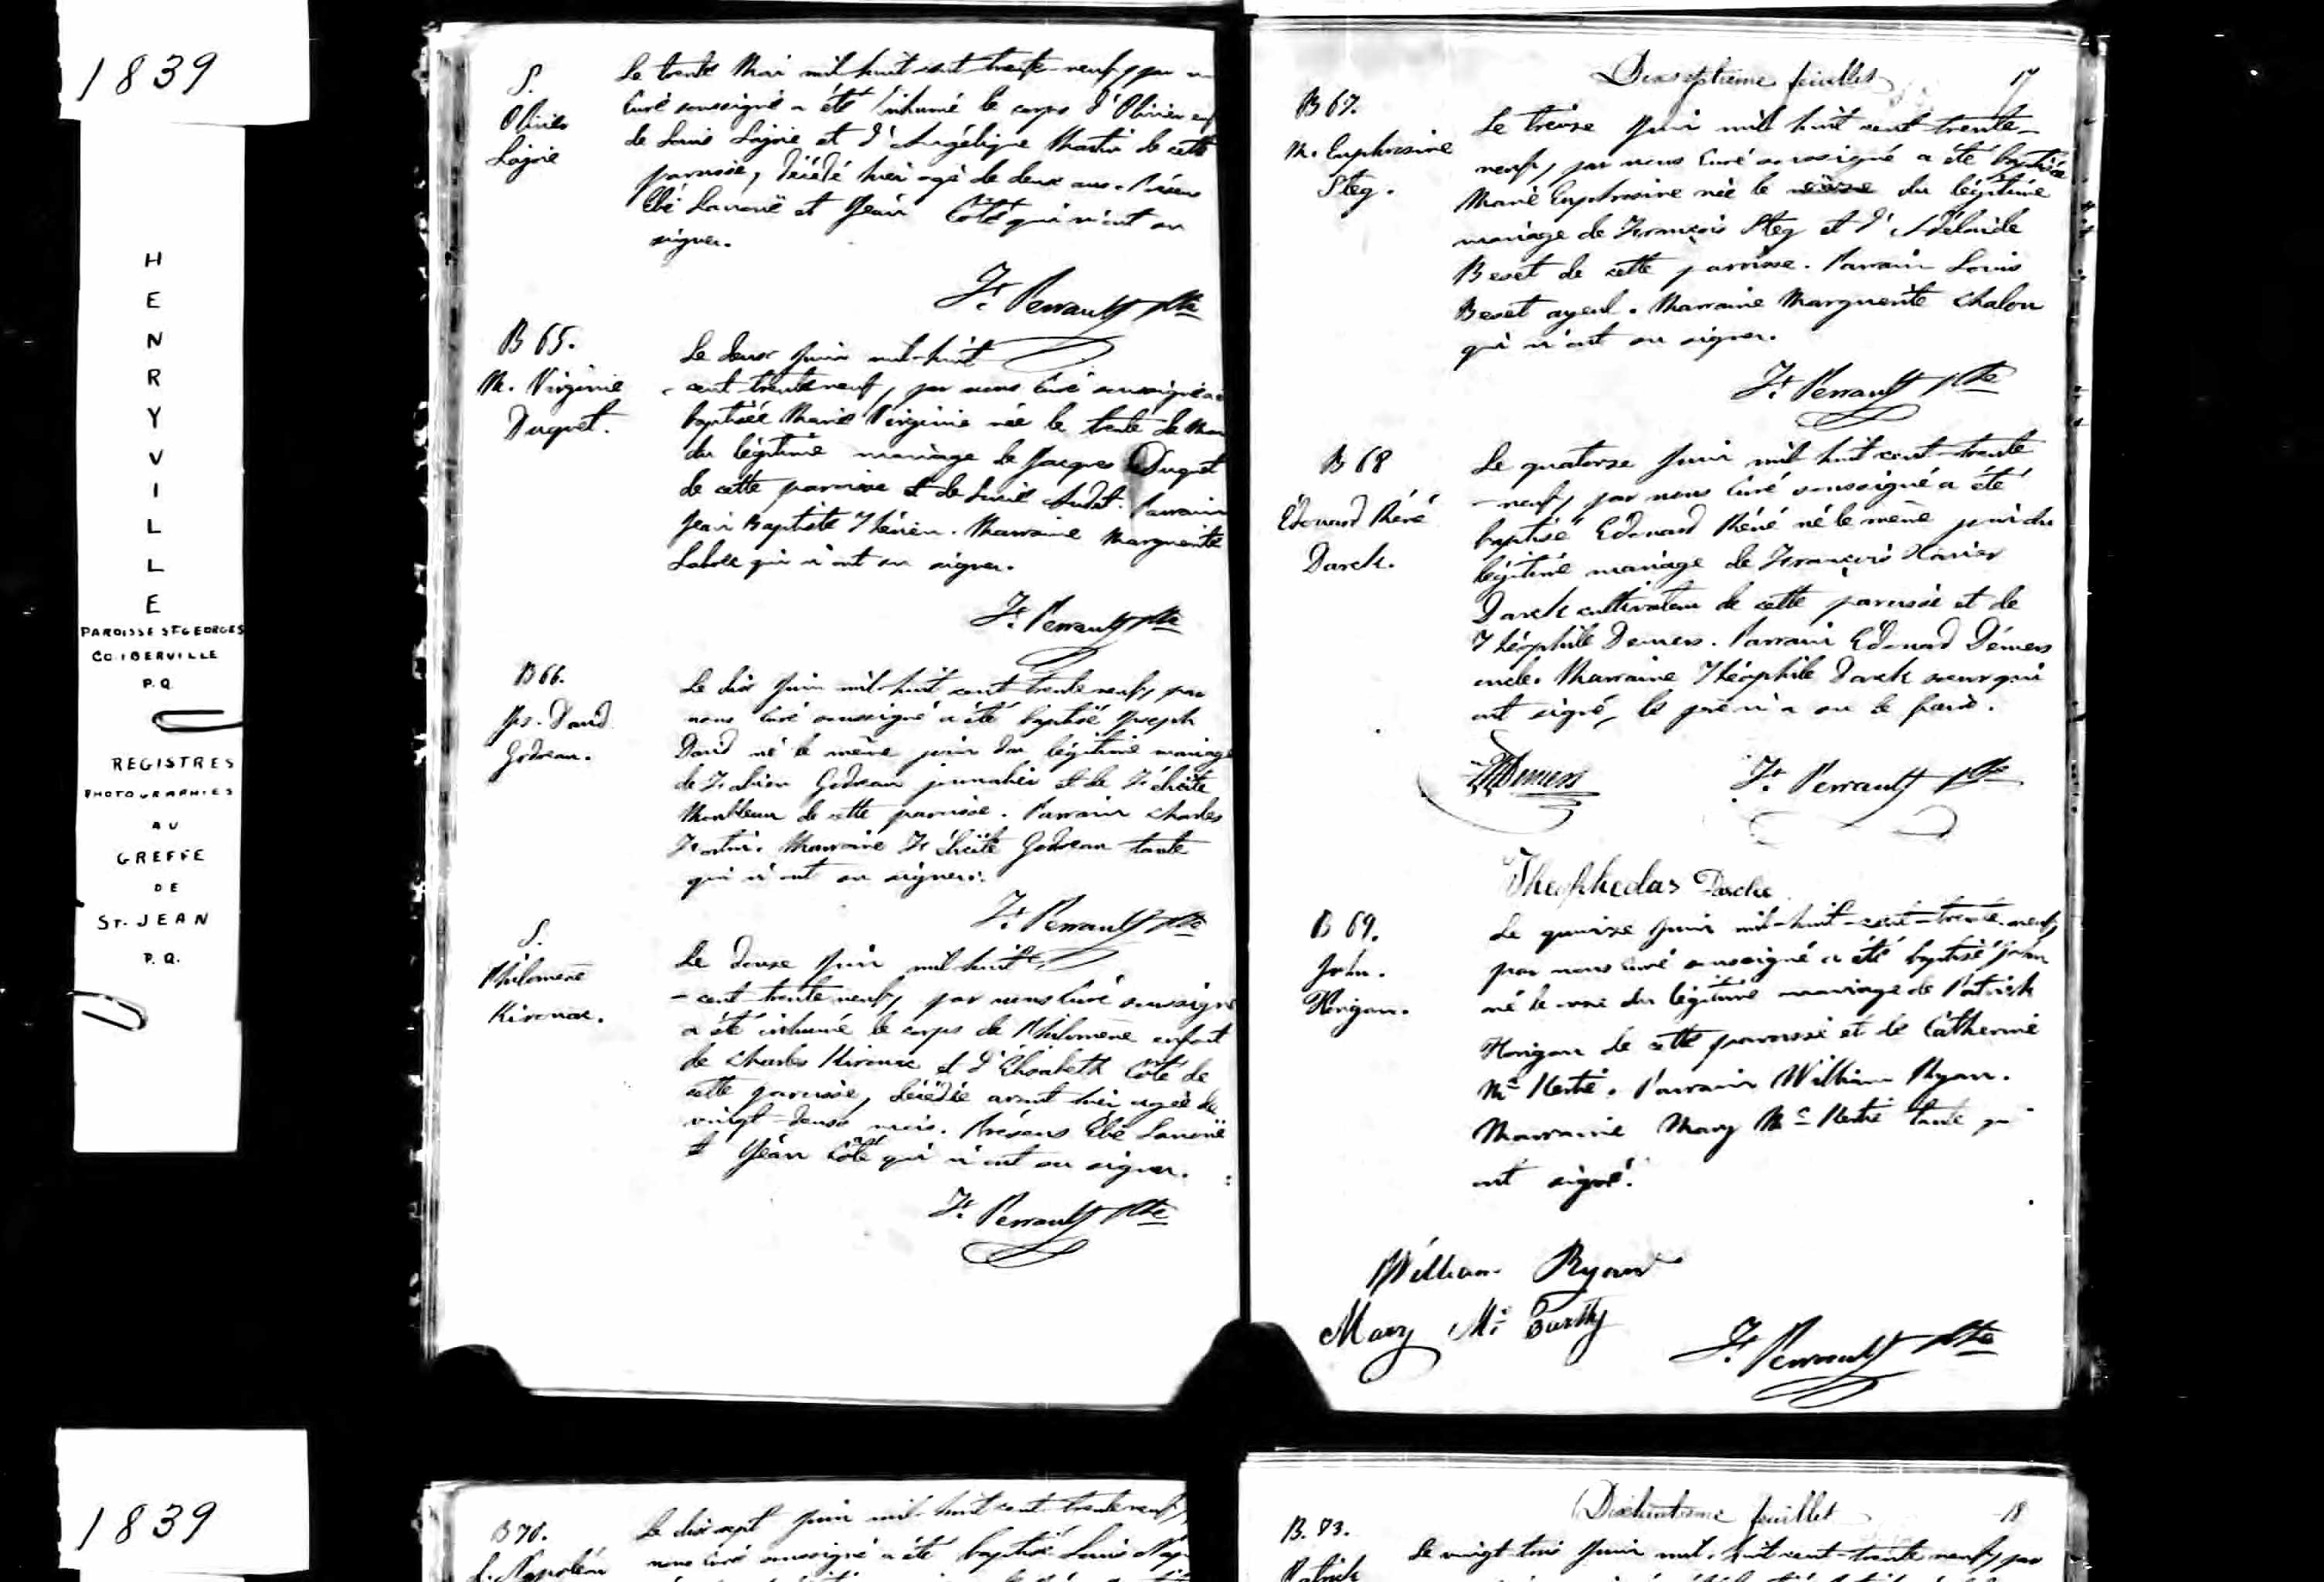 1839
HENRYVILLE
PAROISSE ST GEORGES
CO. IBERVILLE
P.Q.
REGISTRES
PHOTOGRAPHIES
AU
GREFFE
DE
ST. JEAN
P.Q.
S.
Olivier
Lajoie
Le trente Mai mil-huit-cent-trente-neuf, par
Curé soussigné a été inhumé le corps d'Olivier enf
de Louis Lajoie et d'Angélique Martin de cette
paroisse, décédé hier agé de deux ans. Présens
Ebé Lanouë et Jean Côté qui n'ont su
signer.
Fr. Perrault Ptre
B 65.
M. Virginie
Duquet.
Le deux Juin mil-huit
-cent-trente neuf, par nous Curé soussigné a
baptisée Marie Virginie née le trente de Mai
du légitime mariage de Jacques Duquet
de cette paroisse et de Lucie Audet. Parrain
Jean Baptiste Thérien. Marraine Marguerite
qui n'ont su signer.
Fr. Perrault Ptre
B 66.
Jos. David
Godreau.
Le dix Juin mil-huit cent-trente neuf, par
nous Curé soussigné a été baptisé Joseph
David né le même jour du légitime mariage
de Fabien Godreau journalier et de Félicité
Monbleau de cette paroisse. Parrain Charles
Fortin. Marraine Félicité Godreau tante
qui n'ont su signer.
Fr. Perrault Ptre
S.
Philomène
Kirouac.
Le douze Juin mil-huit
-cent-trente neuf, par nous Curé soussigné
a été inhumé le corps de Philomène enfant
de Charles Kirouac et d'Elisabeth Côté de
cette paroisse, décédée avant hier agée de
vingt-deux mois. Présens Ebé Lanouë
et Jean Côté qui n'ont su signer.
Fr. Perrault Ptre
Dixseptième feuillet 17
B 67.
M. Euphrosine
Steg.
Le treize Juin mil huit cent trente-
neuf, par nous Curé soussigné a été baptisée
Marie Euphrosine née le du légitime
mariage de François Steg et d'Adélaide
Beset de cette paroisse. Parrain Louis
Beset ayeul. Marraine Marguerite Chalou
qui n'ont su signer.
Fr. Perrault Ptre
B 68
Édouard Réné
Darck.
Le quatorze Juin mil huit cent-trente
-neuf, par nous Curé soussigné a été
baptisé Edouard Réné né le même jour du
légitime mariage de François Xavier
Darck cultivateur de cette paroisse et de
Théophile Demers. Parrain Edouard Démers
oncle. Marraine Théophile Darck soeur qui
ont signé, le père n'a su le faire.
Demers
Fr. Perrault Ptre
Theophedas Darche
B 69.
John.
Horigan.
Le quinze Juin mil-huit-cent-trente-neuf,
par nous Curé soussigné a été baptisé John
né le onze du légitime mariage de Patrick
Horigan de cette paroisse et de Catherine
Mc Kertié. Parrain William Ryan.
Marraine Mary Mc Kertié tante qui
ont signé.
William Ryan
Mary Mc
Fr. Perrault Ptre
1839
B 70.
L. Napoléon
Le dix sept Juin mil-huit cent trente neuf,
nous Curé soussigné a été baptisé Louis Nap
Dixhuitième feuillet 18
B. 73.
Patrick
Le vingt trois Juin mil-huit cent-trente neuf, par